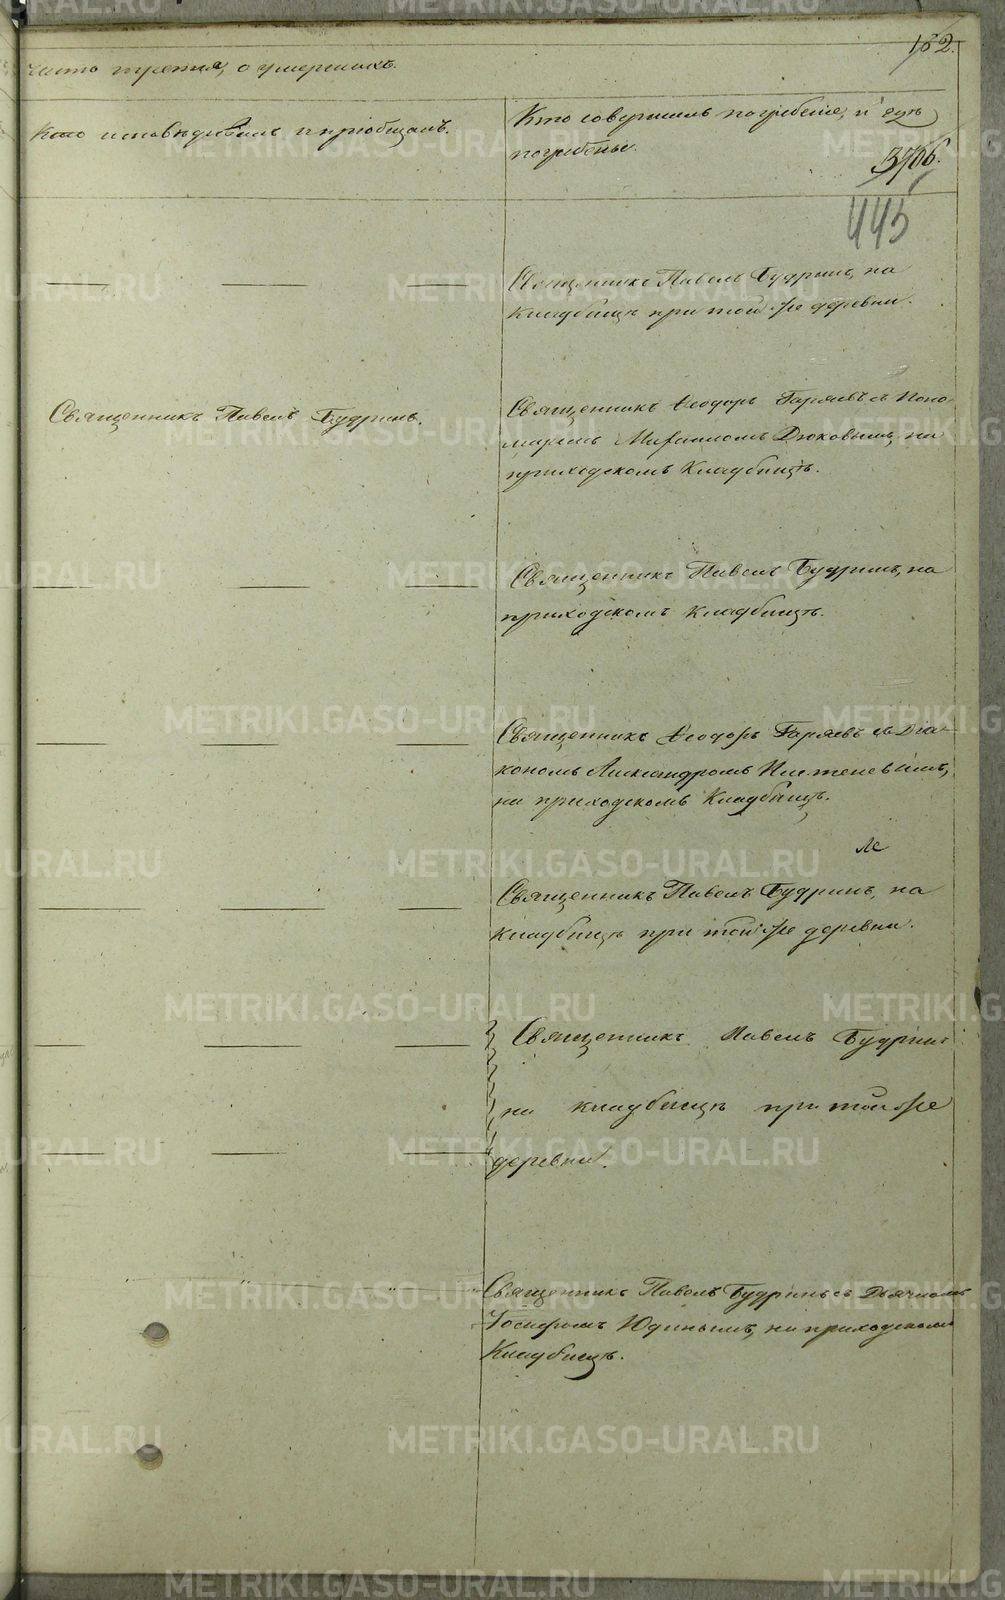 162.
часть третія, о умершихъ.
Кто исповѣдывалъ и пріобщалъ.
Кто совершилъ погребеніе, и гдѣ
погребены.
3706.
445
Священникъ Павелъ Будринъ, на
кладбищѣ при той же деревни.
Священникъ Павелъ Будринъ.
Священникъ Ѳеодоръ Гаряевъ съ Поно-
маремъ Михаиломъ Дюковымъ, на
приходскомъ Кладбищѣ.
Священникъ Павелъ Будринъ, на
приходскомъ кладбищѣ.
Священникъ Ѳеодоръ Гаряевъ съ Діа-
кономъ Александромъ
на приходскомъ Кладбищѣ.
Священникъ Павелъ Будринъ, на
кладбищѣ при той же деревни.
Священникъ Павелъ Будринъ
на кладбищѣ при той же
деревни.
Священникъ Павелъ Будринъ съ Дьячкомъ
Іосифомъ Юдинымъ, на приходскомъ
Кладбищѣ.
METRIKI.GASO-URAL.RU